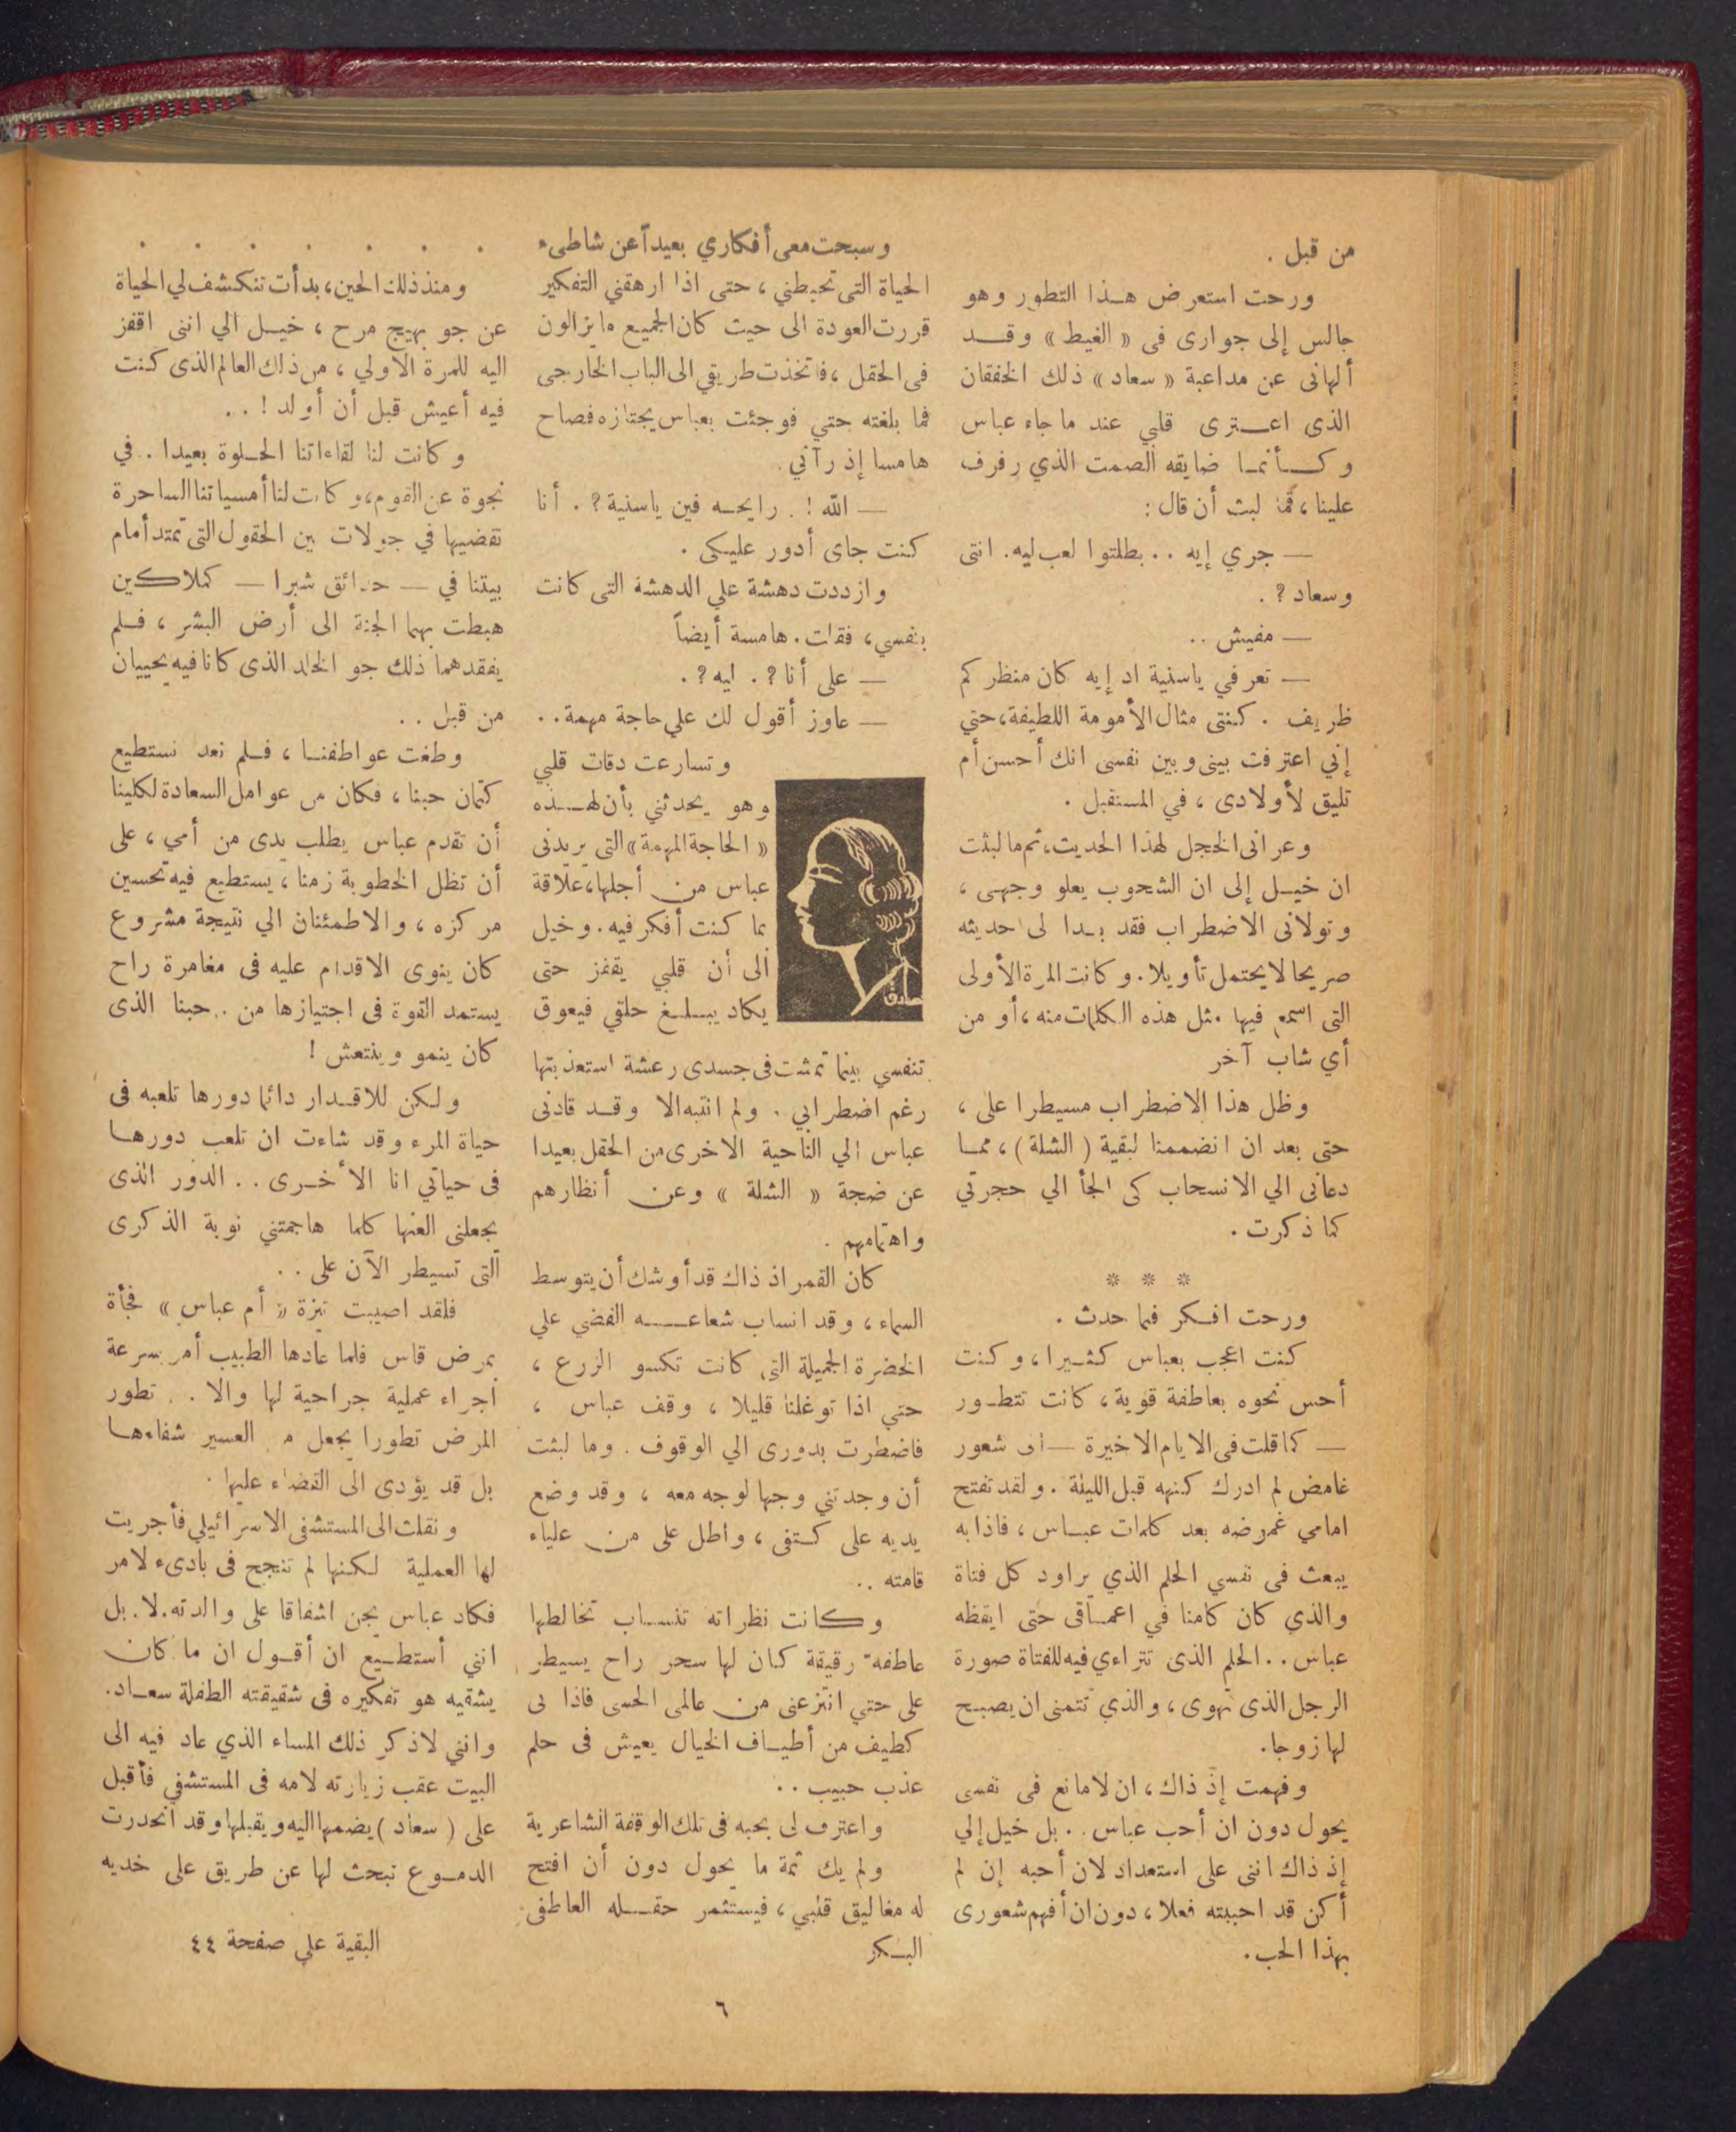 من قبل .
ورحت استعرض هذا التطور وهو
جالس إلى جوارى فى « الغيط » وقد
ألهانى عن مداعبة « سعاد » ذلك الخفقان
الذى اعترى قلبي عند ما جاء عباس
وكأنما ضايقه الصمت الذي رفرف
علينا ، فما لبث أن قال :
— جري إيه . . بطلتوا لعب ليه . انتى
وسعاد ? .
— مفيش . .
— تعرفي ياسنية اد إيه كان منظركم
ظريف . كنتى مثال الأمومة اللطيفة، حتي
إني اعترفت بينى وبين نفسى انك أحسن أم
تليق لأولادى ، في المستقبل .
وعرانى الخجل لهذا الحديث، ثم ما لبثت
ان خيل إلى ان الشحوب يعلو وجهى ،
وتولانى الاضطراب فقد بدا لى حديثه
صريحا لا يحتمل تأويلا . وكانت المرة الأولى
التى اسمع فيها مثل هذه الكلمات منه ، أو من
أي شاب آخر
وظل هذا الاضطراب مسيطرا على ،
حتى بعد ان انضممنا لبقية ( الشلة ) ، مما
دعانى الي الانسحاب كى الجأ الي حجرتي
كما ذكرت .
* * *
ورحت افكر فيما حدث .
كنت اعجب بعباس كثيرا ، وكنت
أحس نحوه بعاطفة قوية ، كانت تتطور
— كما قلت فى الايام الاخيرة — الى شعور
غامض لم ادرك كنهه قبل الليلة . ولقد تفتح
امامي غموضه بعد كلمات عباس ، فاذا به
يبعث فى نفسي الحلم الذي يراود كل فتاة
والذي كان كامنا في اعماقى حتى ايقظه
عباس . . الحلم الذى تتراءي فيه للفتاة صورة
الرجل الذى تهوى ، والذي تتمنى ان يصبح
لها زوجا .
وفهمت إذ ذاك ، ان لا مانع فى نفسى
يحول دون ان أحب عباس . . بل خيل إلي
إذ ذاك اننى على استعداد لان أحبه إن لم
أكن قد احببته فعلا ، دون ان أفهم شعورى
بهذا الحب .
وسبحت معى أفكاري بعيداً عن شاطىء
الحياة التى تحيطني ، حتى اذا ارهقني التفكير
قررت العودة الى حيث كان الجميع مايزالون
فى الحقل ، فاتخذت طريقي الى الباب الخارجى
فما بلغته حتي فوجئت بعباس يجتازه فصاح
هامسا إذ رآني .
— الله ! . رايحه فين ياسنية ? . أنا
كنت جاى أدور عليكى .
وازددت دهشة علي الدهشة التى كانت
بنفسي ، فقلت . هامسة أيضاً
— على أنا ? . ليه ? .
— عاوز أقول لك علي حاجة مهمة . .
وتسارعت دقات قلبي
وهو يحدثني بأن لهذه
« الحاجة المهمة » التى يريدنى
عباس من أجلها ، علاقة
بما كنت أفكر فيه . وخيل
الى أن قلبي يقفز حتى
يكاد يبلغ حلقي فيعوق
تنفسي بينما تمشت فى جسدى رعشة استعذبتها
رغم اضطرابي . ولم انتبه الا وقد قادنى
عباس الي الناحية الاخرى من الحقل بعيدا
عن ضجة « الشلة » وعن أنظارهم
واهتمامهم .
كان القمر اذ ذاك قد أوشك أن يتوسط
السماء ، وقد انساب شعاعه الفضي علي
الخضرة الجميلة التى كانت تكسو الزرع ،
حتي اذا توغلنا قليلا ، وقف عباس ،
فاضطرت بدورى الي الوقوف . وما لبثت
أن وجدتني وجها لوجه معه ، وقد وضع
يديه على كتفى ، واطل على من علياء
قامته . .
وكانت نظراته تنساب تخالطها
عاطفة رقيقة كان لها سحر راح يسيطر
على حتي انتزعنى من عالمى الحسى فاذا بى
كطيف من أطياف الخيال يعيش فى حلم
عذب حبيب . .
واعترف لى بحبه فى تلك الوقفة الشاعرية
ولم يك ثمة ما يحول دون أن افتح
له مغاليق قلبي ، فيستثمر حقله العاطفى
البكر
صادق
. . . . . . .
ومنذ ذلك الحين ، بدأت تنكشف لي الحياة
عن جو بهيج مرح ، خيل الي اننى اقفز
اليه للمرة الاولي ، من ذلك العالم الذى كنت
فيه أعيش قبل أن أولد ! . .
وكانت لنا لقاءاتنا الحلوة بعيدا . . في
نجوة عن القوم، وكانت لنا أمسياتنا الساحرة
نقضيها في جولات بين الحقول التى تمتد أمام
بيتنا في — حدائق شبرا — كملاكين
هبطت بهما الجنة الى أرض البشر ، فلم
يفقدهما ذلك جو الخلد الذى كانا فيه يحييان
من قبل . .
وطغت عواطفنا ، فلم نعد نستطيع
كتمان حبنا ، فكان من عوامل السعادة لكلينا
أن تقدم عباس يطلب يدى من أمي ، على
أن تظل الخطوبة زمنا ، يستطيع فيه تحسين
مركزه ، والاطمئنان الي نتيجة مشروع
كان ينوى الاقدام عليه فى مغامرة راح
يستمد القوة فى اجتيازها من . . حبنا الذى
كان ينمو وينتعش !
ولكن للاقدار دائما دورها تلعبه فى
حياة المرء وقد شاءت ان تلعب دورها
فى حياتي انا الأخرى . . الدور الذى
يجعلنى العنها كلما هاجمتني نوبة الذكرى
التى تسيطر الآن على . .
فلقد اصيبت تيزة « أم عباس » فجأة
بمرض قاس فلما عادها الطبيب أمر بسرعة
اجراء عملية جراحية لها والا . . تطور
المرض تطورا يجعل من العسير شفاءها
بل قد يؤدى الى القضاء عليها .
ونقلت الى المستشفى الاسرائيلي فأجريت
لها العملية لكنها لم تنجح فى بادىء لامر
فكاد عباس يجن اشفاقا على والدته . لا . بل
انني أستطيع ان أقول ان ما كان
يشقيه هو تفكيره فى شقيقته الطفلة سعاد .
وانني لاذكر ذلك المساء الذي عاد فيه الى
البيت عقب زيارته لامه فى المستشفي فأقبل
على ( سعاد ) يضمها اليه ويقبلها وقد انحدرت
الدموع تبحث لها عن طريق على خديه
البقية علي صفحة ٤٤
٦